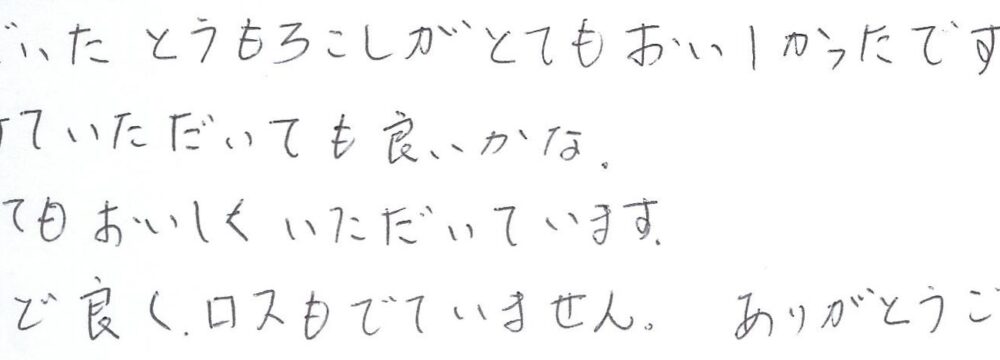 だいた とうもろこしがとてもおいしかったです
けていただいても良いかな.
てもおいしくいただいています.
で良く.ロスもでていません。 ありがとうご